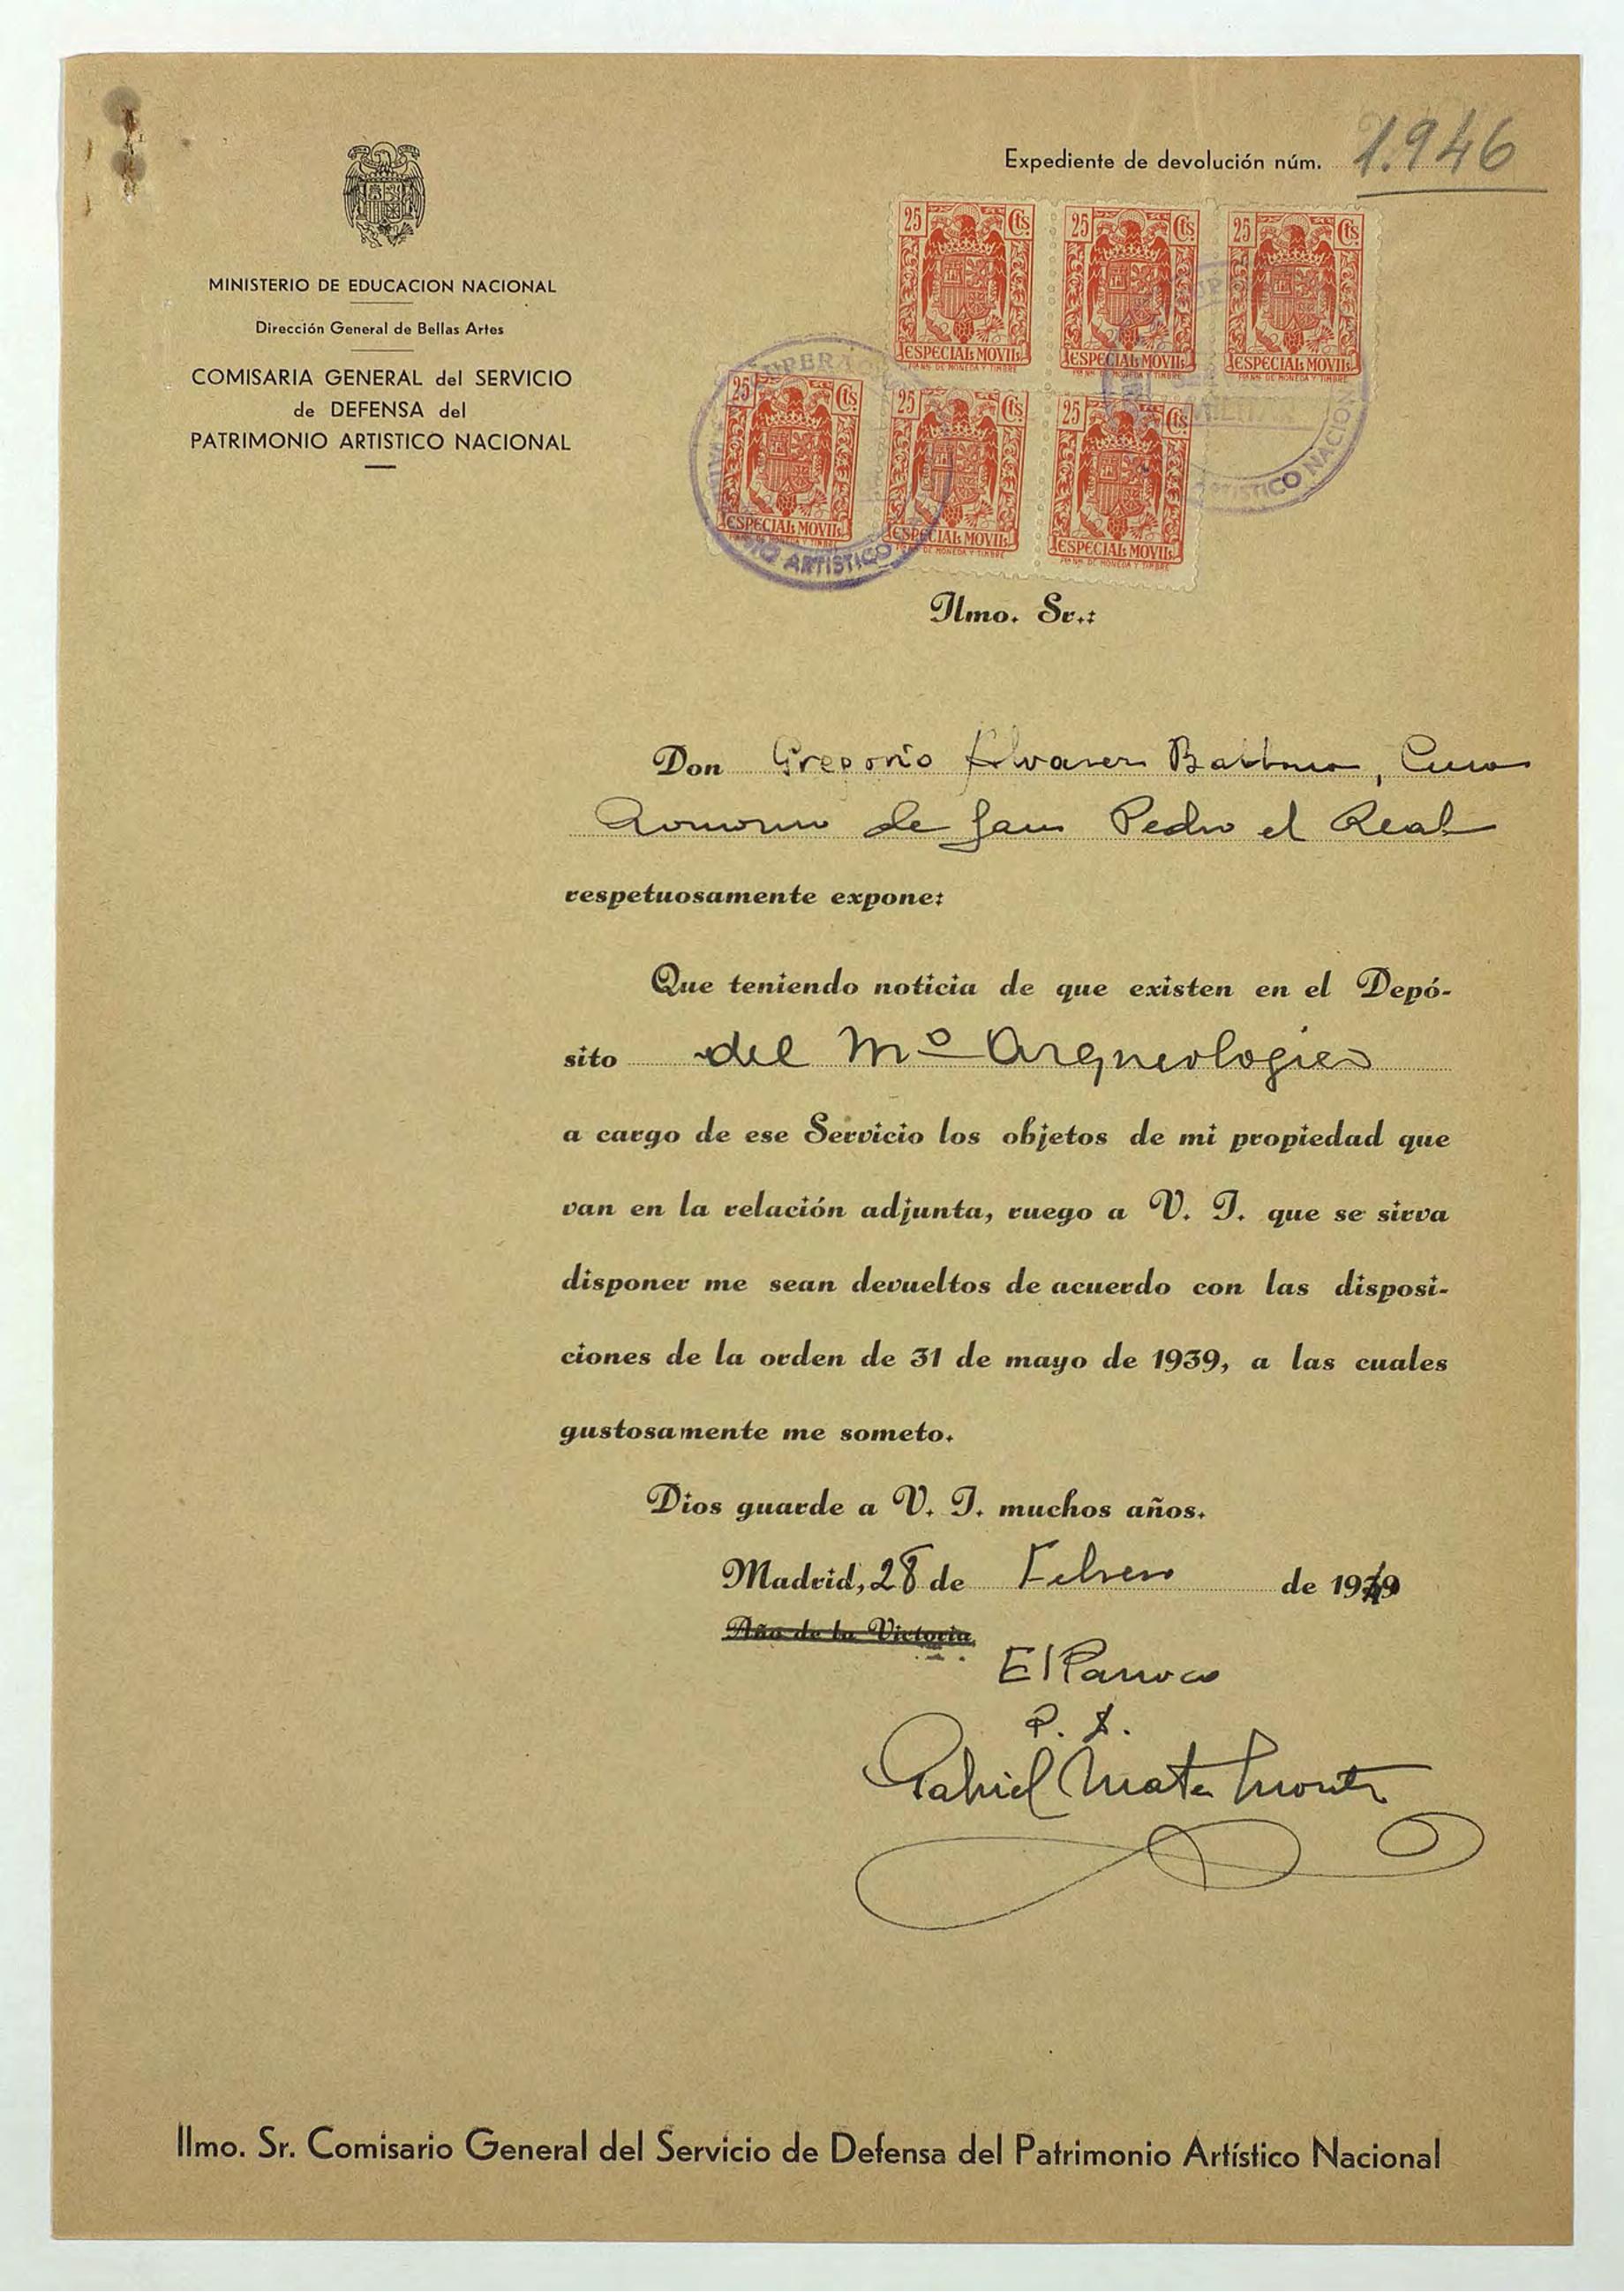 Expediente de devolución núm. 1.946
MINISTERIO DE EDUCACION NACIONAL
Dirección General de Bellas Artes
COMISARIA GENERAL del SERVICIO
de DEFENSA del
PATRIMONIO ARTISTICO NACIONAL
25 Cts. 25 Cts. 25 Cts.
ESPECIAL MOVIL ESPECIAL MOVIL ESPECIAL MOVIL
25 Cts. 25 Cts. 25 Cts.
ESPECIAL MOVIL ESPECIAL MOVIL ESPECIAL MOVIL
ARTISTICO
MILITAR
ARTISTICO NACION
Ilmo. Sr.:
Don Gregorio Alvarez, Cura
de San Pedro el Real
respetuosamente expone:
Que teniendo noticia de que existen en el Depó-
sito del Mº Arqueologico
a cargo de ese Servicio los objetos de mi propiedad que
van en la relación adjunta, ruego a V. I. que se sirva
disponer me sean devueltos de acuerdo con las disposi-
ciones de la orden de 31 de mayo de 1939, a las cuales
gustosamente me someto.
Dios guarde a V. I. muchos años.
Madrid, 28 de Febrero de 19
Año de la Victoria
El Parroco
Gabriel Mata
Ilmo. Sr. Comisario General del Servicio de Defensa del Patrimonio Artístico Nacional